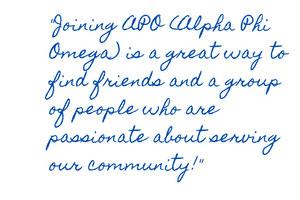 "Joining APO (Alpha Phi
Omega) is a great way to
find friends and a group
of people who are
passionate about serving
our community!"